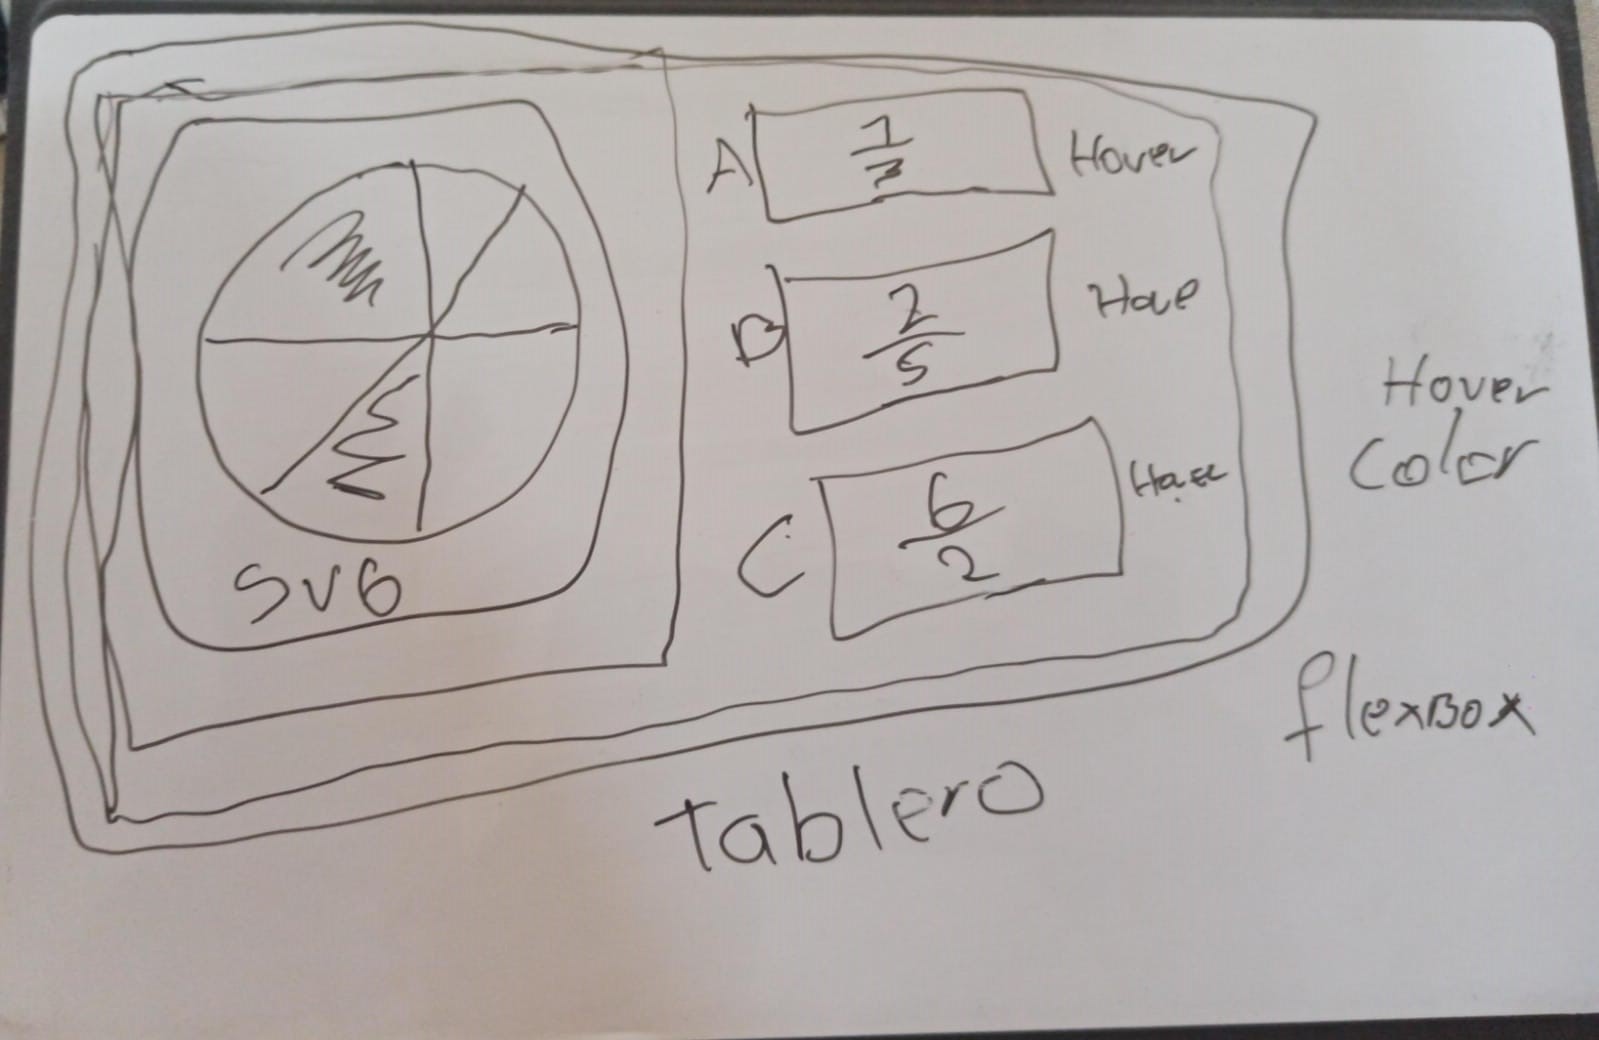 SVG
A
1
3
Hover
B
2
5
Hove
C
6
2
Hover
color
flexBox
tablero